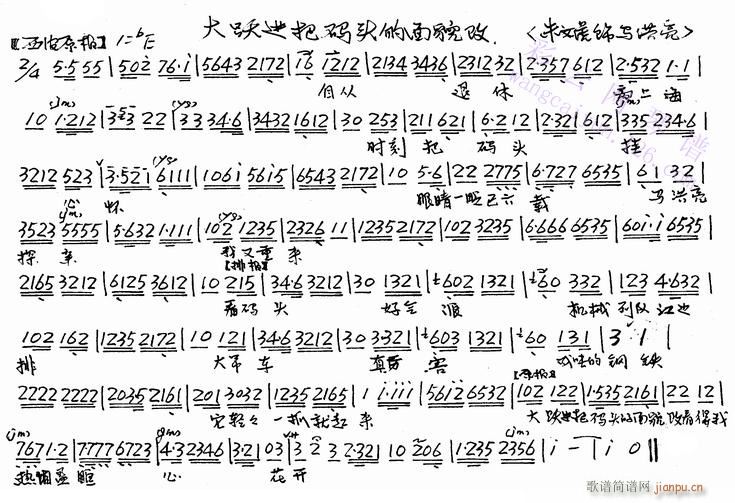 大跃进把码头的面貌改
【西皮原板】 1=bE
2/4 5·5 55 | 502 76·1 | 5643 2172 | 16 1212 | 2134 3436 | 2312 32 | 2·357 612 | 2·532 1·1 |
自从 退休 离上海
10 1·212 | 353 22 | 33 34·6 | 3432 1612 | 30 253 | 211 621 | 6·212 | 2·321 612 | 335 234·6 |
时刻把 码头 挂
3212 523 | 3·521 6111 | 1061 5615 | 6543 2172 | 10 5·6 | 22 2775 | 6·727 6535 | 61 32 |
心怀 眼睛一眨已六载 马洪亮
3523 5555 | 5·632 1·111 | 102 1235 | 2326 11 | 1235 2172 | 102 3235 | 6·666 6535 | 6011 6535 |
探亲 我又重来
【排板】
2165 3212 | 6125 3612 | 10 215 | 34·6 3212 | 30 1321 | 602 1321 | 60 332 | 123 4·632 |
看码头 好气派 机械列队江边
102 162 | 1235 2172 | 10 121 | 34·6 3212 | 30 3·321 | 603 1321 | 60 131 | 3 1 |
排 大吊车 真厉害 成吨的钢铁
2222 2222 | 2035 2161 | 201 3032 | 1235 2165 | 1 1·111 | 5612 6532 | 102 122 | 1·535 2161 | 22 12 |
它轻轻一抓就起来 大跃进把码头的面貌改看得我
7671·2 | 7·777 6723 | 4·32346 | 3·2103 | 3 2 3 2·321 | 10 206 | 1·235 2356 | 1 - | 1 0 ||
热泪盈眶 心花开
歌谱简谱网
jianpu.cn